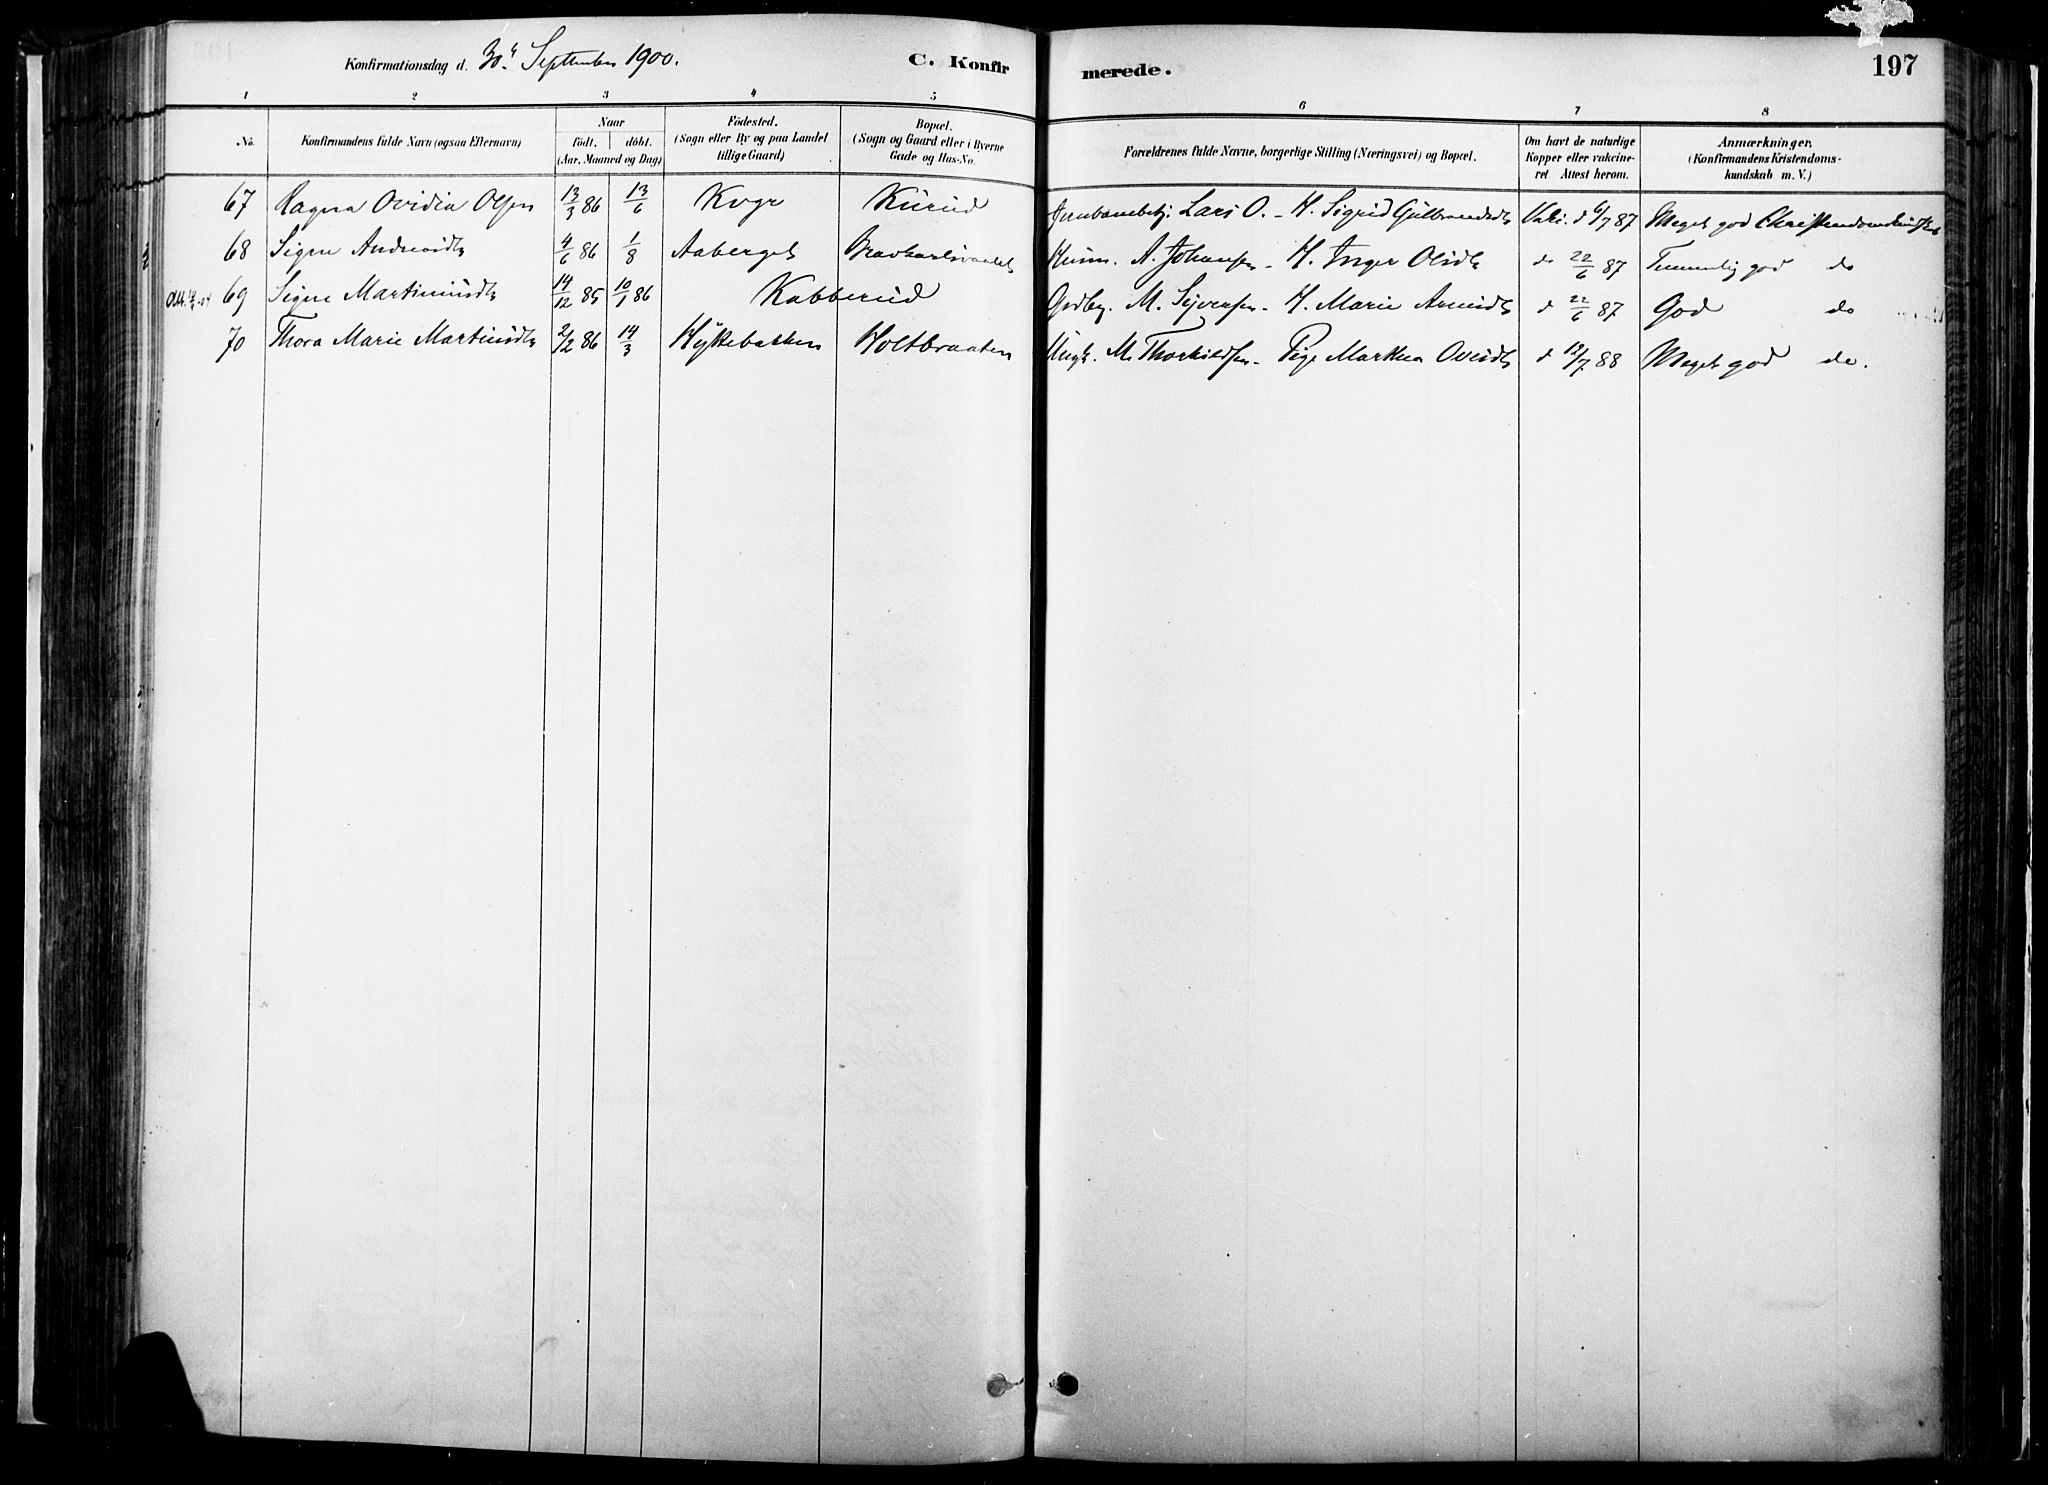 Konfirmationsdag d. 30. September 1900. C. Konfirmerede. 197
1 2 3 4 5 6 7 8
No. Konfirmandens fulde Navn (ogsaa Efternavn) Naar født. døbt. (Aar, Maaned og Dag) Fødested. (Sogn eller By og paa Landet tillige Gaard) Bopæl. (Sogn og Gaard eller i Byerne Gade og Hus-No. Forældrenes fulde Navne, borgerlige Stilling (Næringsvei) og Bopæl. Om havt de naturlige Kopper eller vakcineret. Attest herom. Anmærkninger. (Konfirmandens Kristendomskundskab m. V.)
67 Ragna Ovidia Olsen 13/3 86 13/6 Kurud Lars O. - H. Sigrid Gulbrandsdt Vakc. d 6/7 87 Meget god Christendomskundskab
68 Signe Andreasdt 4/6 86 1/8 Aaberget Husm. A. Johansen - H. Inger Olsdt do 22/6 87 Temmelig god do
69 Signe Martiniusdt 14/12 85 10/1 86 Kabberud Gbr. M. Syversen - H. Marie Arnesdt d 22/6 87 God do
70 Thora Marie Martinsdt 2/2 86 14/3 Hyttebakken Holtbraaten Ungk. M. Thorkildsen - Pige Marthea Ovesdt d 12/7 88 Meget god do.